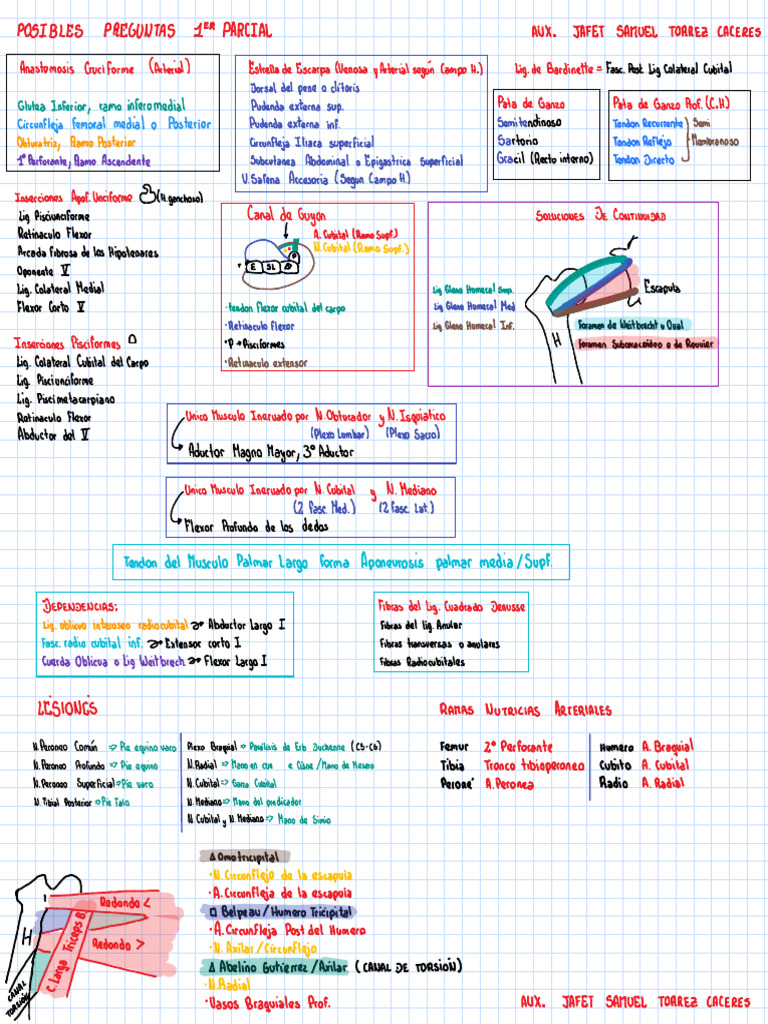 POSIBLES PREGUNTAS 1ER PARCIAL
AUX. JAFET SAMUEL TORREZ CACERES
Anastomosis Cruciforme (Arterial)
Glutea Inferior, ramo inferomedial
Circunfleja Femoral medial o Posterior
Obturatriz, Ramo Posterior
1° Perforante, Ramo Ascendente
Estrella de Escarpa (Venosa y Arterial según Campo H.)
Dorsal del pene o clitoris
Pudenda externa sup.
Pudenda externa inf.
Circunfleja Iliaca superficial
Subcutanea Abdominal o Epigastrica superficial
V. Safena Accesoria (Segun Campo H.)
Lig. de Bardinette = Fasc. Post Lig Colateral Cubital
Pata de Ganzo
Semitendinoso
Sartorio
Gracil (Recto interno)
Pata de Ganzo Prof. (C.H)
Tendon Recurrente
Tendon Reflejo
Tendon Directo
Semi
Membranoso
Inserciones Apof. Unciforme (H. ganchoso)
Lig Pisciunciforme
Retinaculo Flexor
Arcada fibrosa de los Hipotenares
Oponente V
Lig. Colateral Medial
Flexor Corto V
Inserciones Pisciformes
Lig. Colateral Cubital del Carpo
Lig. Pisciunciforme
Lig. Piscimetacarpiano
Retinaculo Flexor
Abductor del V
Canal de Guyon
A. Cubital (Ramo Supf.)
N. Cubital (Ramo Supf.)
E SL P
P
· tendon flexor cubital del carpo
· Retinaculo flexor
· P → Pisciformes
· Retinaculo extensor
SOLUCIONES DE CONTINUIDAD
Lig Gleno Homeral Sup.
Lig Gleno Homeral Med
Lig Gleno Homeral Inf.
Escapula
H
Foramen de Weitbrecht u Oval
Foramen Subcoracoideo o de Rouvier
Unico Musculo Inervado por N. Obturador y N. Isquiatico
(Plexo Lumbar) (Plexo Sacro)
Aductor Magno Mayor, 3° Aductor
Unico Musculo Inervado por N. Cubital y N. Mediano
(2 Fasc. Med.) (2 Fasc. Lat.)
Flexor Profundo de los dedos
Tendon del Musculo Palmar Largo forma Aponeurosis palmar media/Supf.
DEPENDENCIAS:
Lig. oblicuo interoseo radiocubital → Abductor Largo I
Fasc. radio cubital inf. → Extensor corto I
Cuerda Oblicua o Lig Weitbrech → Flexor Largo I
Fibras del Lig. Cuadrado Denusse
Fibras del lig. Anular
Fibras transversas o anulares
Fibras Radiocubitales
LESIONES
N. Peroneo Común => Pie equino varo
N. Peroneo Profundo => Pie equino
N. Peroneo Superficial => Pie varo
N. Tibial Posterior => Pie Talo
Plexo Braquial => Paralisis de Erb Duchenne (C5-C6)
N. Radial => Mano en cue o Cisne/Mano de Mesero
N. Cubital => Garra Cubital
N. Mediano => Mano del predicador
N Cubital y N. Mediano => Mano de Simio
RAMAS NUTRICIAS ARTERIALES
Femur 2° Perforante
Tibia Tronco tibioperoneo
Peroné A. Peronea
Humero A. Braquial
Cubito A. Cubital
Radio A. Radial
Redondo <
Redondo >
C. Larga Triceps B.
H
CANAL TORSIÓN
Δ Omotricipital
· N. Circunflejo de la escapula
· A. Circunfleja de la escapula
□ Belpeau/Humero Tricipital
· A. Circunfleja Post del Humero
· N. Axilar/Circunflejo
Δ Abelino Gutierrez/Axilar (CANAL DE TORSIÓN)
· N. Radial
· Vasos Braquiales Prof.
AUX. JAFET SAMUEL TORREZ CACERES